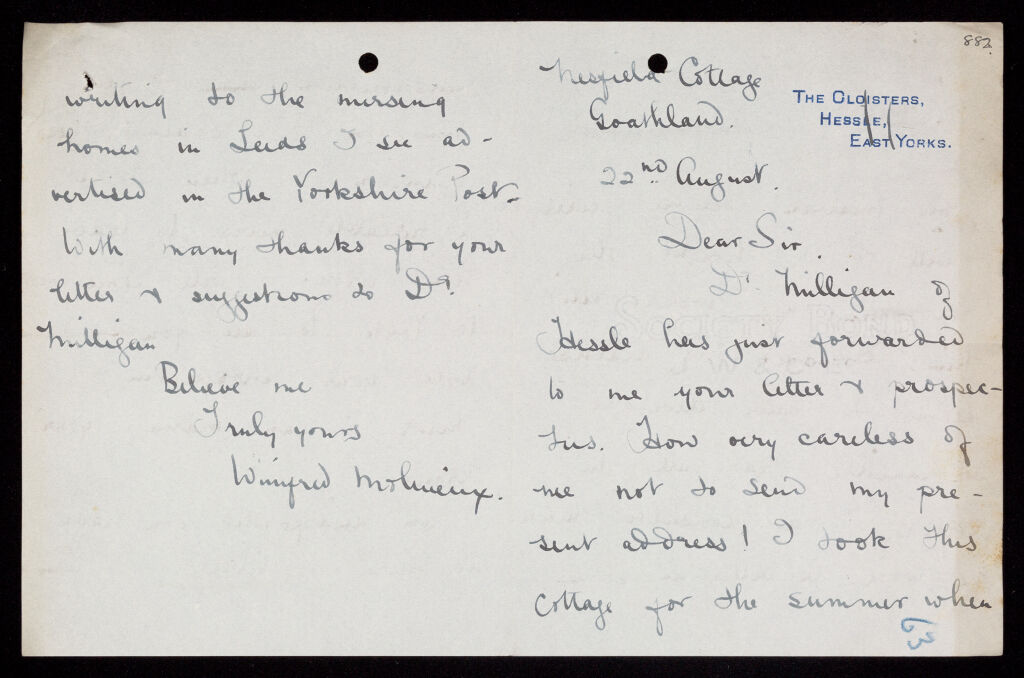 882.
Nesfield Cottage
Goathland.
THE CLOISTERS,
HESSLE,
EAST YORKS.
22nd August.
Dear Sir,
Dr. Milligan of
Hessle has just forwarded
to me your letter & prospec-
tus. How very careless of
me not to send my pre-
sent address! I took this
cottage for the summer when
63
writing to the nursing
homes in Leeds I see ad-
vertised in the Yorkshire Post.
With many thanks for your
letter & suggestions to Dr.
Milligan
Believe me
Truly yours
Winifred Molineux.